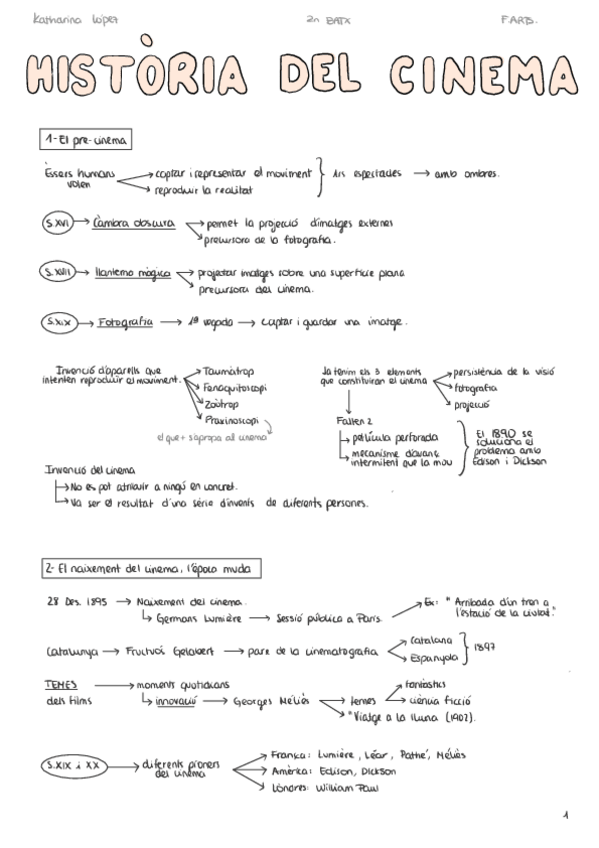 Katharina López 2n BATX F.ARTS.
HISTÒRIA DEL CINEMA
1- El pre-cinema
Éssers humans volen → captar i representar el moviment
→ reproduir la realitat
1rs espectacles → amb ombres.
S.XVI → Càmbra obscura → permet la projecció d'imatges externes
→ precursora de la fotografia.
S.XVII → llanterna màgica → projectar imatges sobre una superfície plana
→ precursora del cinema.
S.XIX → Fotografia → 1ª vegada → captar i guardar una imatge.
Invenció d'aparells que
intenten reproduir el moviment.
→ Taumàtrop
→ Fenaquitoscopi
→ Zoòtrop
→ Praxinoscopi
el que + s'apropa al cinema
Ja tenim els 3 elements
que constituiran el cinema
→ persistència de la visió
→ fotografia
→ projecció
Falten 2
→ pel·lícula perforada
→ mecanisme d'avanç
intermitent que la mou
El 1890 se
soluciona el
problema amb
Edison i Dickson
Invenció del cinema
→ No es pot atribuir a ningú en concret.
→ Va ser el resultat d'una sèrie d'invents de diferents persones.
2- El naixement del cinema, l'època muda
28 Des. 1895 → Naixement del cinema.
→ Germans Lumière → Sessió pública a París → Ex: "Arribada d'un tren a
l'estació de la ciutat".
Catalunya → Fructuós Gelabert → pare de la cinematografia → Catalana
→ Espanyola
1897
TEMES → moments quotidians
dels films → innovació → Georges Méliès → temes → fantàstics
→ ciència ficció
→ "Viatge a la lluna (1902).
S.XIX i XX → diferents pioners
del cinema
→ França: Lumière, Léar, Pathé, Méliès
→ Amèrica: Edison, Dickson
→ Londres: William Paul
1